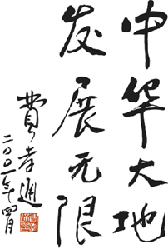 中华大地
发展无限
费孝通
二〇〇一年四月